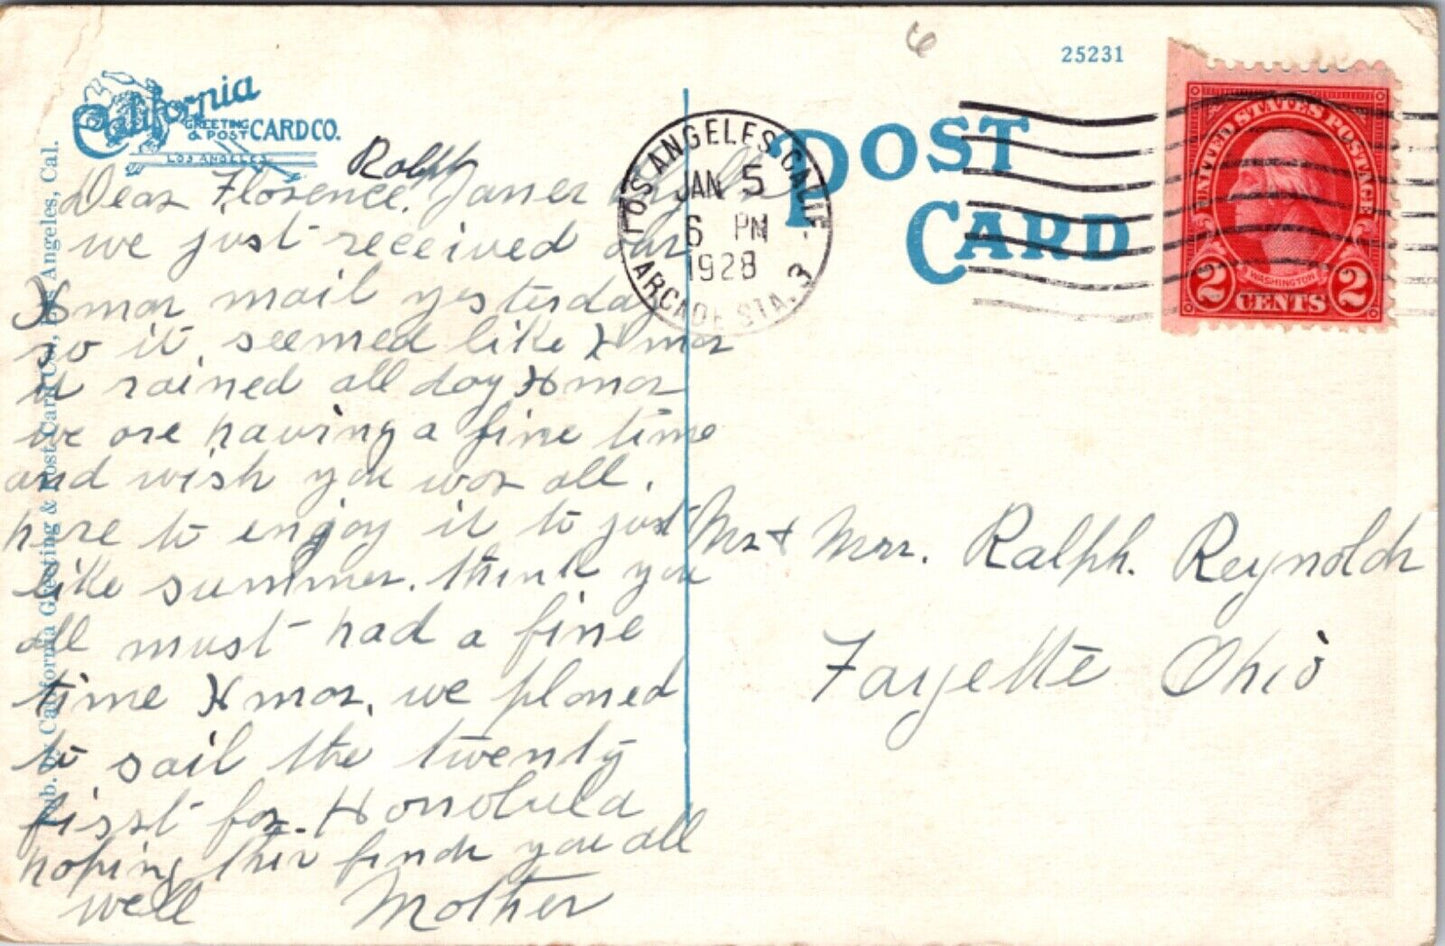 25231
California
GREETING
& POST CARD CO.
LOS ANGELES
POST
CARD
LOS ANGELES, CALIF.
JAN 5
6 PM
1928
ARCADE STA. 3
UNITED STATES POSTAGE
WASHINGTON
2 CENTS 2
Pub. by California Greeting & Post Card Co., Los Angeles, Cal.
Ralph
Dear Florence, James
we just received our
Xmas mail yesterday
so it seemed like Xmas
it rained all day Xmas
we are having a fine time
and wish you was all.
here to enjoy it to just
like summer. think you
all must had a fine
time Xmas, we planed
to sail the twenty
first for Honolula
hoping this finds you all
well Mother
Mr & Mrs. Ralph. Reynolds
Fayette Ohio